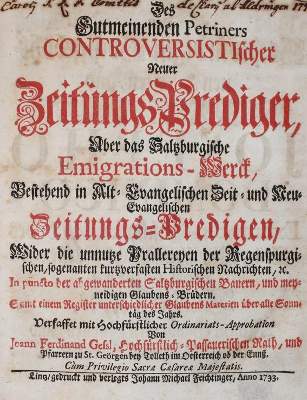 Des
Gutmeinenden Petriners
CONTROVERSISTIscher
Neuer
Zeitungs-Prediger,
Uber das Saltzburgische
Emigrations-Werck,
Bestehend in Alt-Evangelischen Zeit- und Neu-
Evangelischen
Zeitungs-Predigen,
Wider die unnutze Prallereyen der Regenspurgi-
schen, sogenanten kurtzverfasten Historischen Nachrichten, ꝛc.
In puncto der abgewanderten Saltzburgischen Bauern, und mey-
neidigen Glaubens-Brüdern.
Samt einem Register unterschiedlicher Glaubens Materien über alle Sonn-
täg des Jahrs.
Verfasset mit Hochfürstlicher Ordinariats-Approbation
Von
Joann Ferdinand Gessl, Hochfürstlich-Passauerischen Rath, und
Pfarrern zu St. Geörgen bey Tolleth im Oesterreich ob der Ennß.
Cum Privilegio Sacræ Cæsareæ Majestatis.
Lintz, gedruckt und verlegts Johann Michael Feichtinger, Anno 1733.